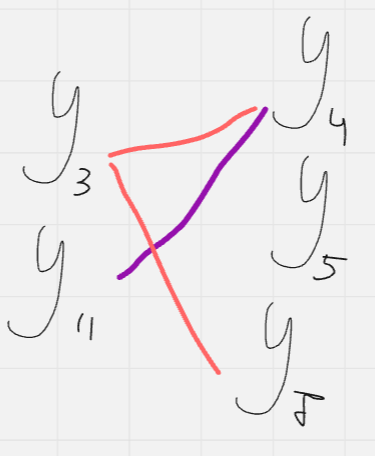 y₃
y₁₁
y₄
y₅
y